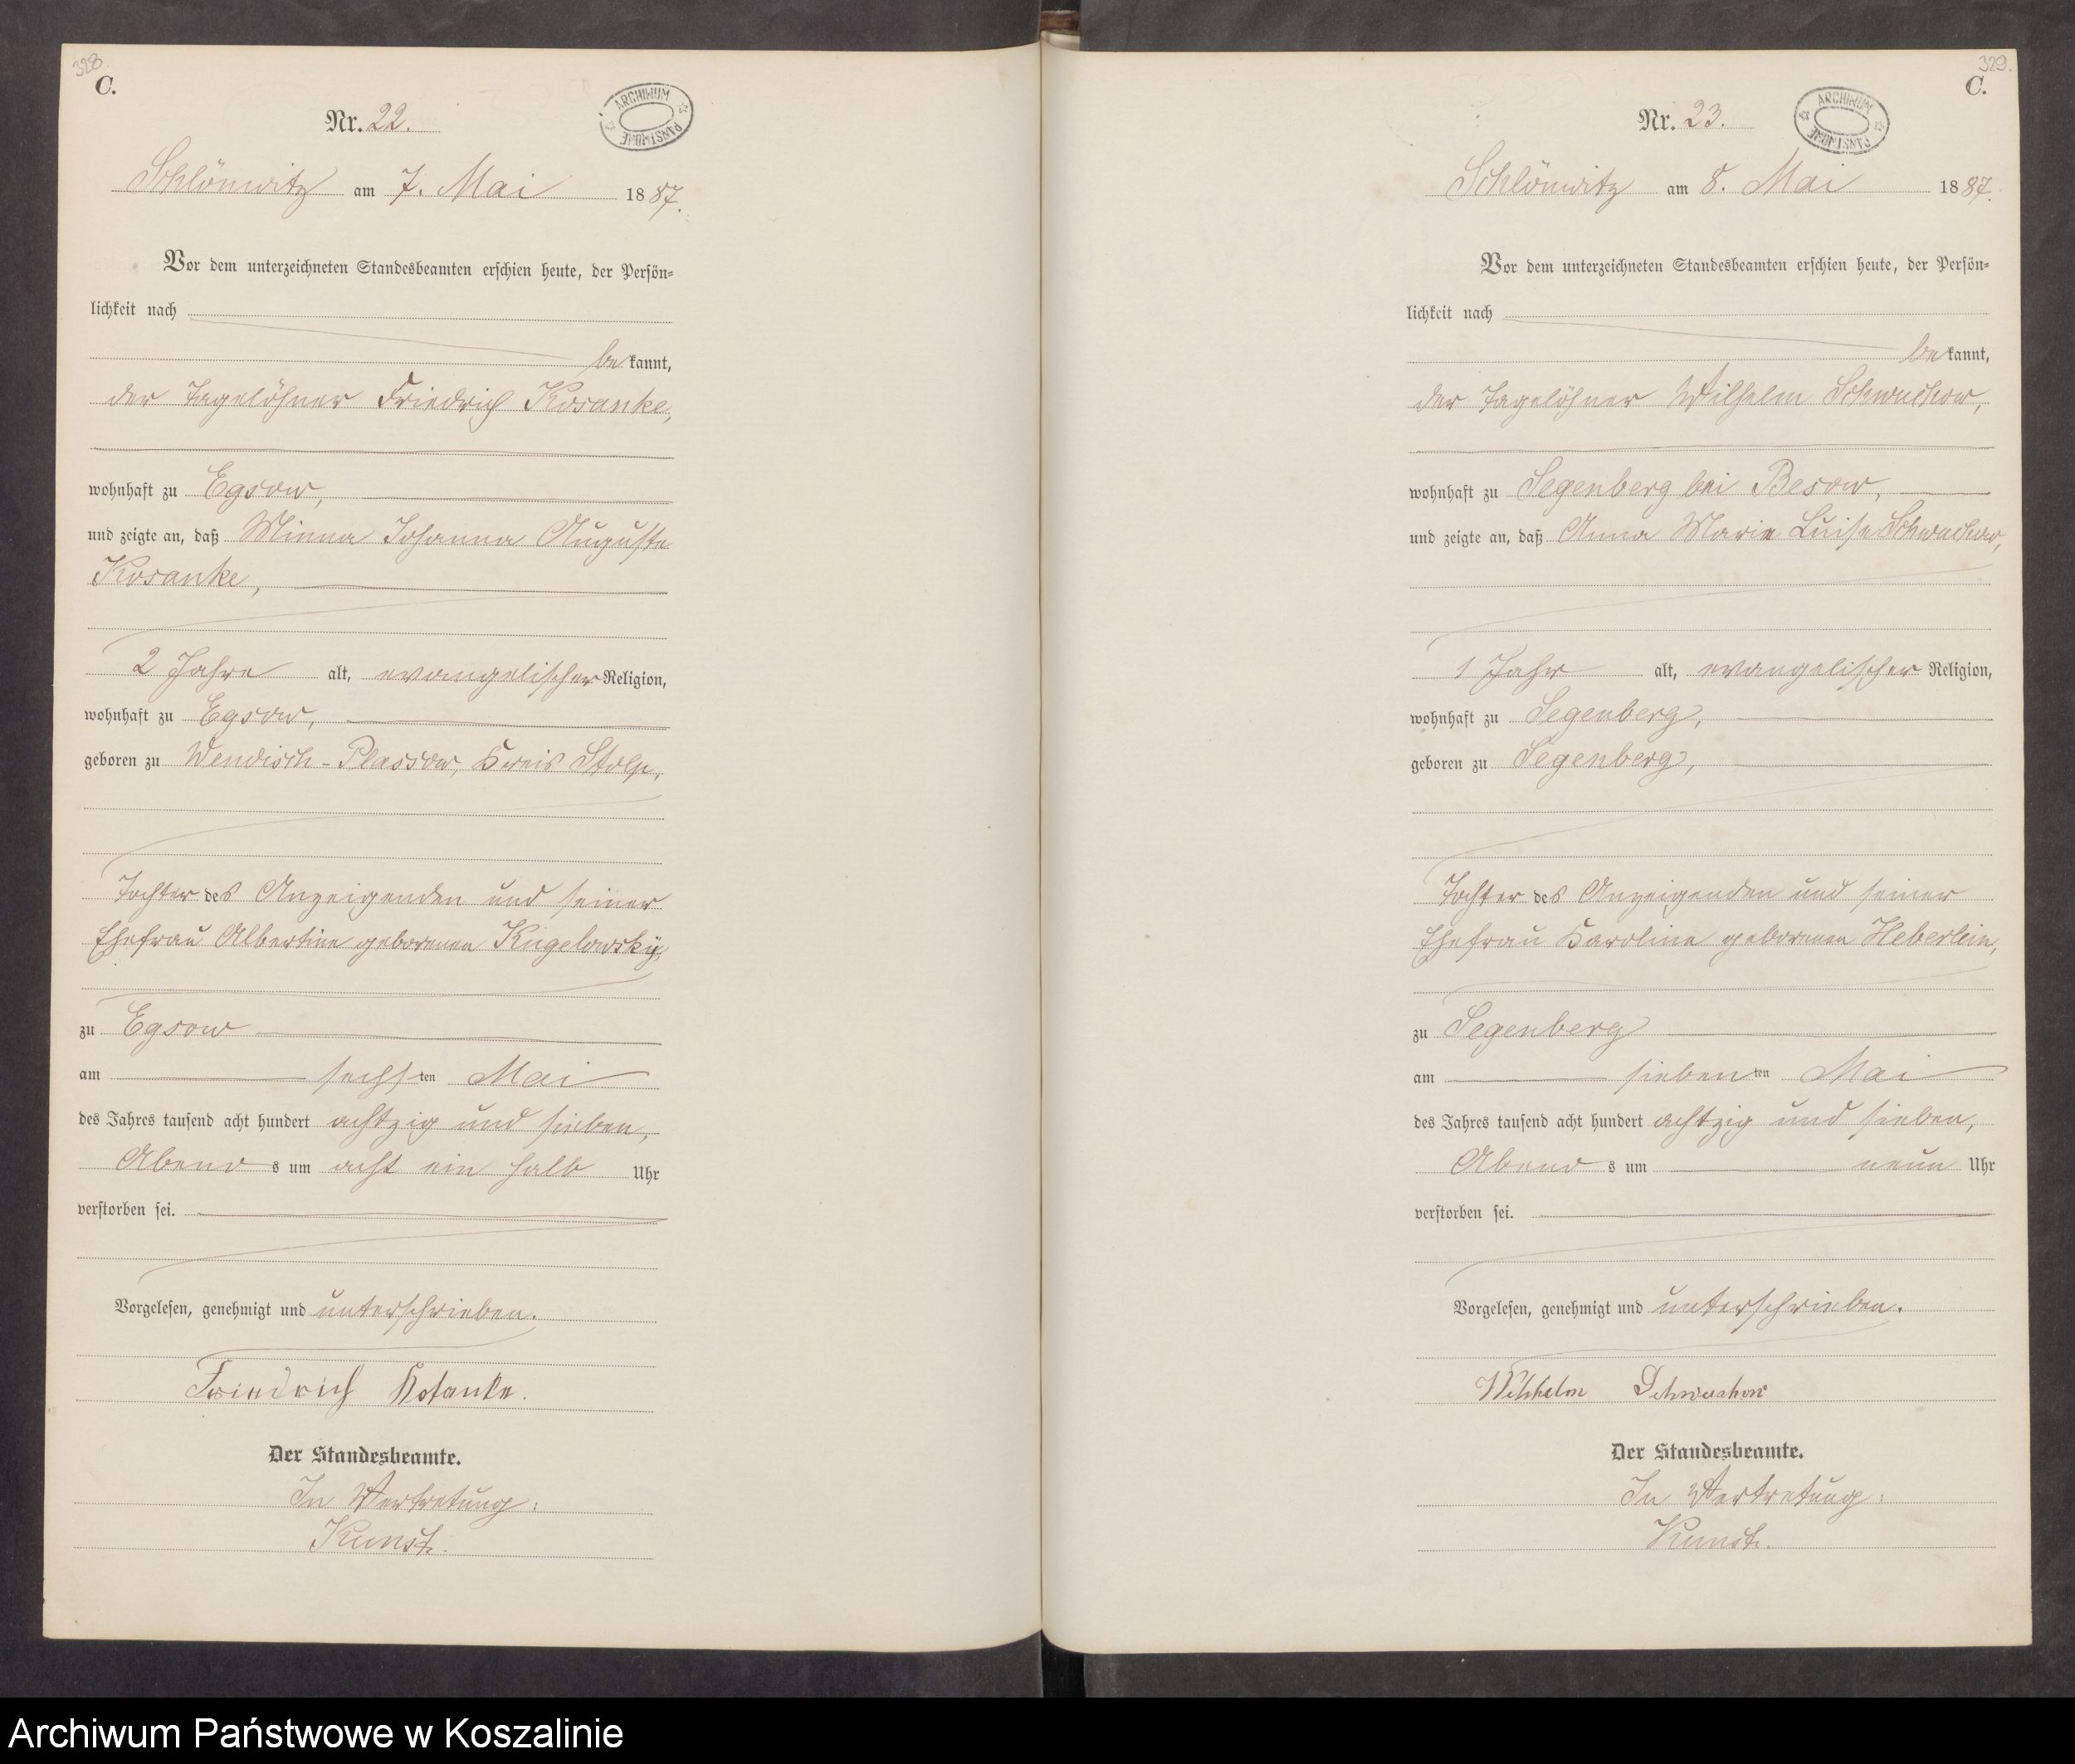 328.
C.
Nr. 22.
ARCHIWUM PAŃSTWOWE
Schlönwitz am 7. Mai 1887.
Vor dem unterzeichneten Standesbeamten erschien heute, der Persön-
lichkeit nach
bekannt,
der Tagelöhner Friedrich Kosanke,
wohnhaft zu Egsow,
und zeigte an, daß Minna Johanna Auguste
Kosanke,
2 Jahre alt, evangelischer Religion,
wohnhaft zu Egsow,
geboren zu Wendisch-Plassow, Kreis Stolp,
Tochter des Anzeigenden und seiner
Ehefrau Albertine geborenen Kugelowsky,
zu Egsow
am sechsten Mai
des Jahres tausend acht hundert achtzig und sieben,
Abends um acht ein halb Uhr
verstorben sei.
Vorgelesen, genehmigt und unterschrieben.
Friedrich Kosanke.
Der Standesbeamte.
In Vertretung:
Kunst.
329.
C.
Nr. 23.
ARCHIWUM PAŃSTWOWE
Schlönwitz am 8. Mai 1887.
Vor dem unterzeichneten Standesbeamten erschien heute, der Persön-
lichkeit nach
bekannt,
der Tagelöhner Wilhelm Schwuchow,
wohnhaft zu Segenberg bei Besow,
und zeigte an, daß Anna Marie Luise Schwuchow,
1 Jahr alt, evangelischer Religion,
wohnhaft zu Segenberg,
geboren zu Segenberg,
Tochter des Anzeigenden und seiner
Ehefrau Karoline geborenen Heberlein,
zu Segenberg
am siebenten Mai
des Jahres tausend acht hundert achtzig und sieben,
Abends um neun Uhr
verstorben sei.
Vorgelesen, genehmigt und unterschrieben.
Wilhelm Schwuchow
Der Standesbeamte.
In Vertretung:
Kunst.
Archiwum Państwowe w Koszalinie